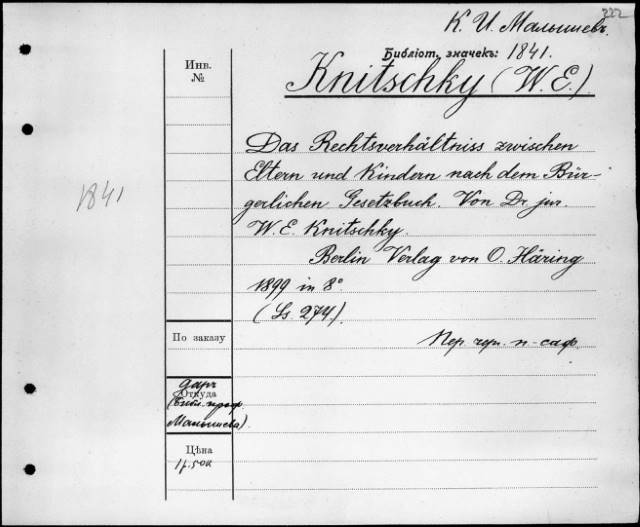 222
К. И. Малышевъ.
Библіот. значекъ: 1841.
Knitschky (W. E.)
Инв.
№
Das Rechtsverhältniss zwischen
Eltern und Kindern nach dem Bür-
gerlichen Gesetzbuch. Von Dr. jur.
W. E. Knitschky.
Berlin Verlag von O. Häring
1899 in 8°
(Ss. 274).
1841
По заказу
Пер. чрн. п-саф.
даръ
Откуда
(библ. проф.
Малышева)
Цѣна
1 р. 50 к